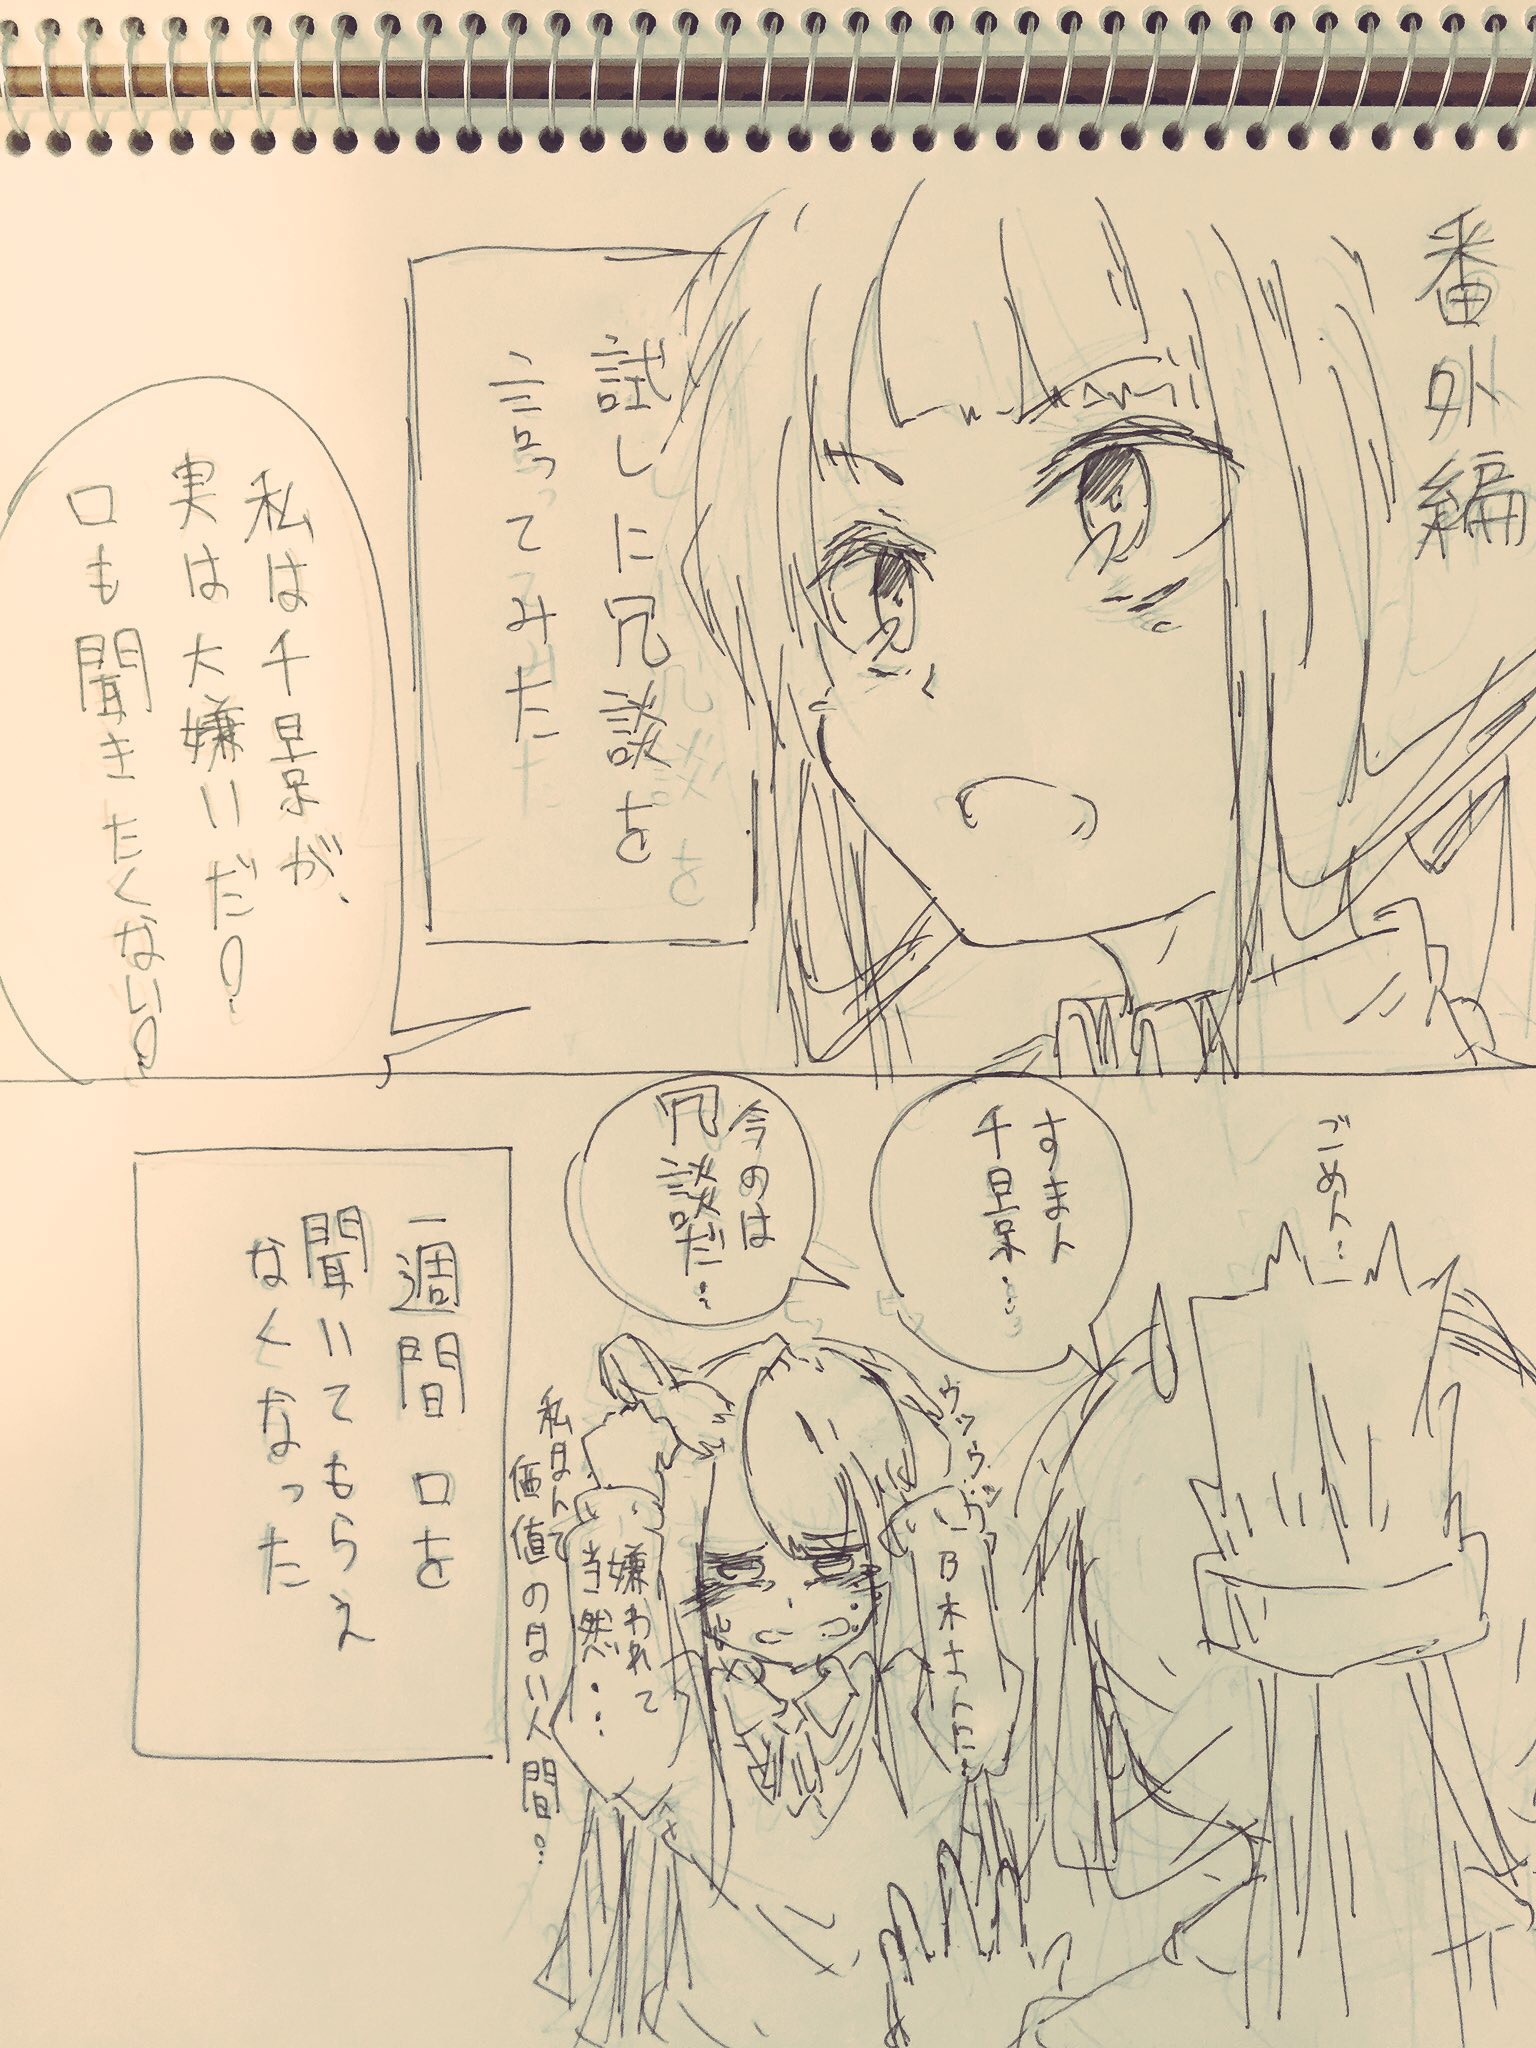 番外編
試しに冗談を
言ってみた
私は千景が、
実は大嫌いだ!
口も聞きたくない!
ごめん…
すまん
千景…
今のは
冗談だ…
ウッウッ…
嫌われて
当然…
私なんて
価値のない人間…
一週間 口を
聞いてもらえ
なくなった